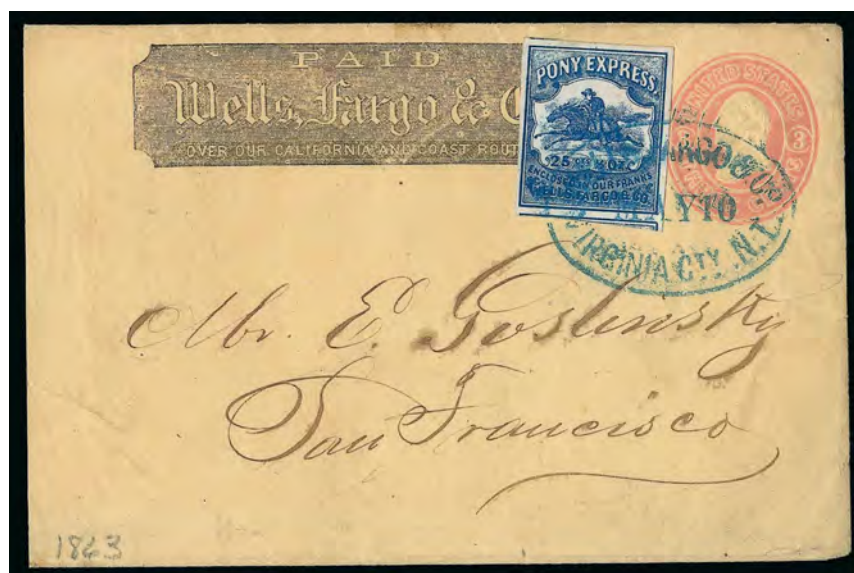 PAID
Wells, Fargo & C
OVER OUR CALIFORNIA AND COAST ROUT
PONY EXPRESS.
25 CTS ½ OZ.
ENCLOSED IN OUR FRANKS
WELLS, FARGO & CO.
UNITED STATES
3
ARGO & Co
Y10
VIRGINIA CTY. N.T.
Mr. E. Goslinsky
San Francisco
1863